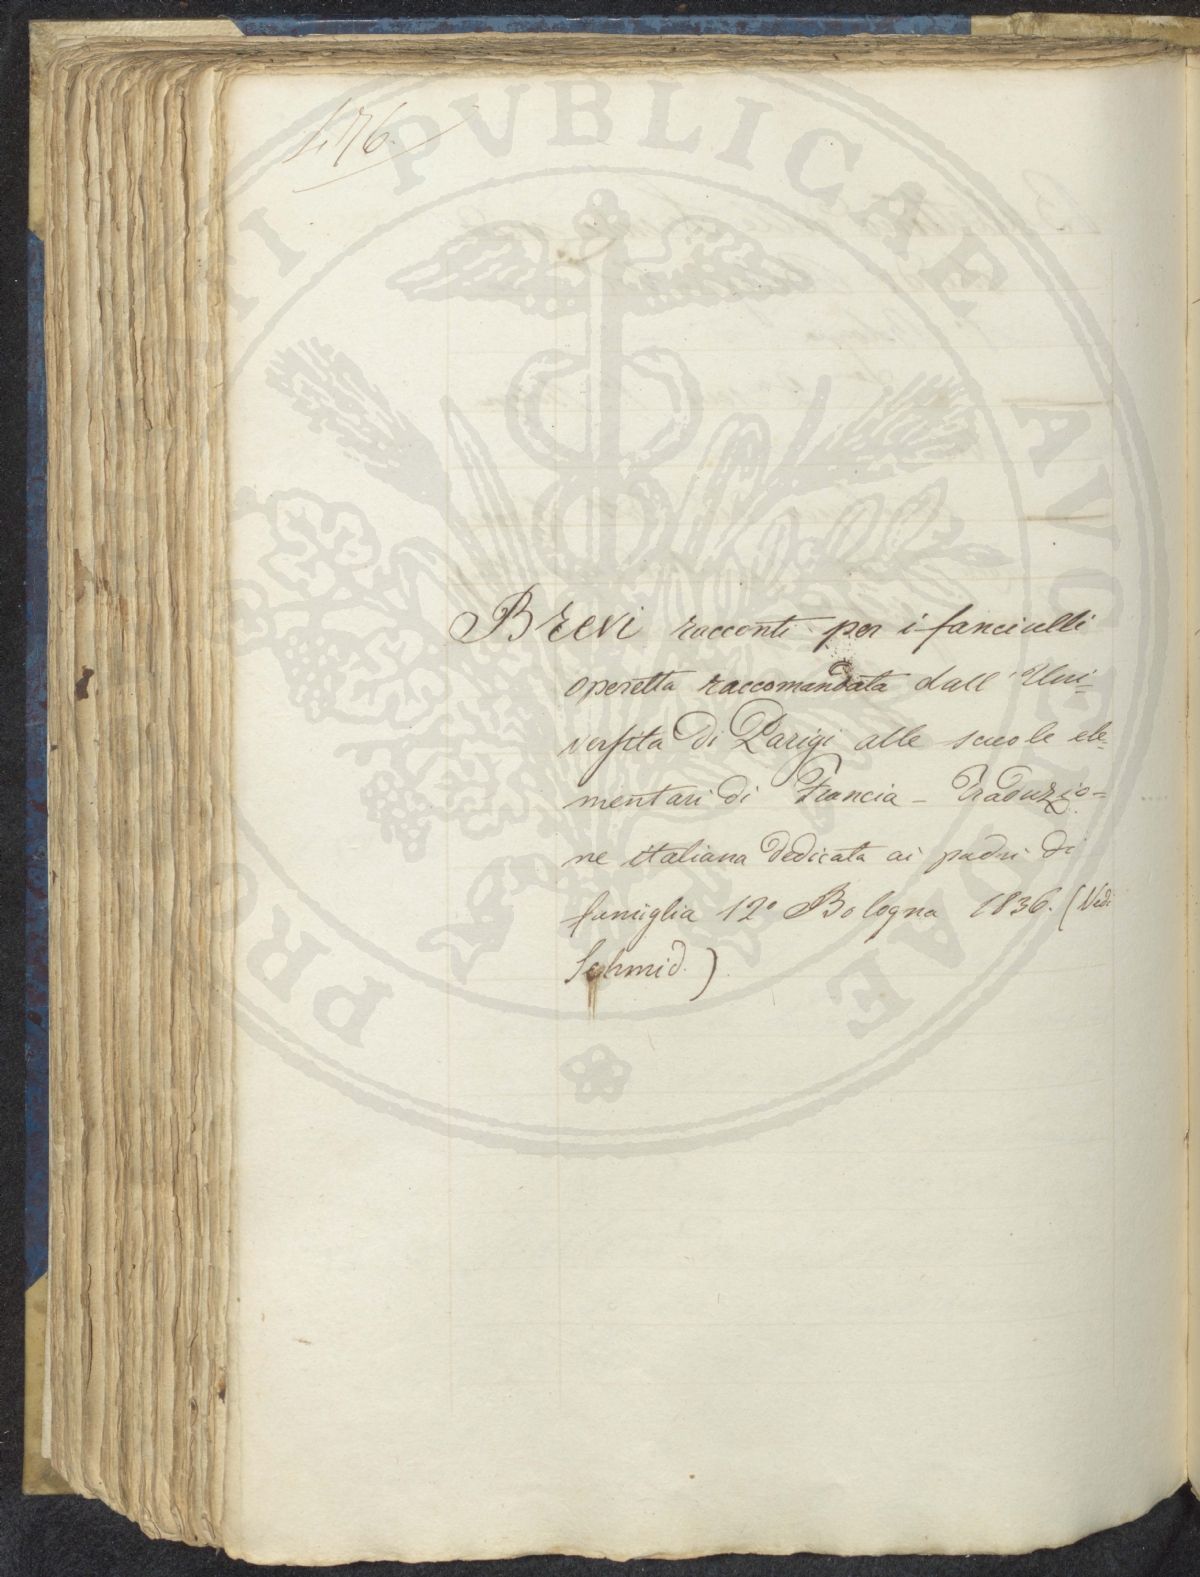 f. 76.
Brevi racconti per i fanciulli
operetta raccomandata dall' Uni=
versita di Parigi alle scuole ele=
mentari di Francia - Traduzio=
ne italiana dedicata ai padri di
famiglia 12° Bologna 1836. (Vedi
Schmid.)
PROSPERITATI PUBLICAE AVGENDAE